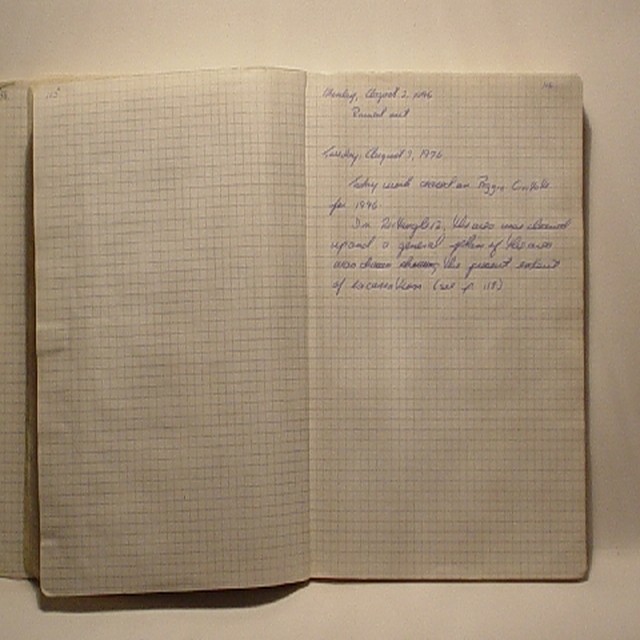 115
Monday, August 2 1976
Rained out
Tuesday, August 3, 1976
Today work ceased on Poggio Civitate
for 1976.
In Rettangolo 12, the area was cleaned
up and a general plan of the area
was drawn showing the present extent
of excavation (see p 118)